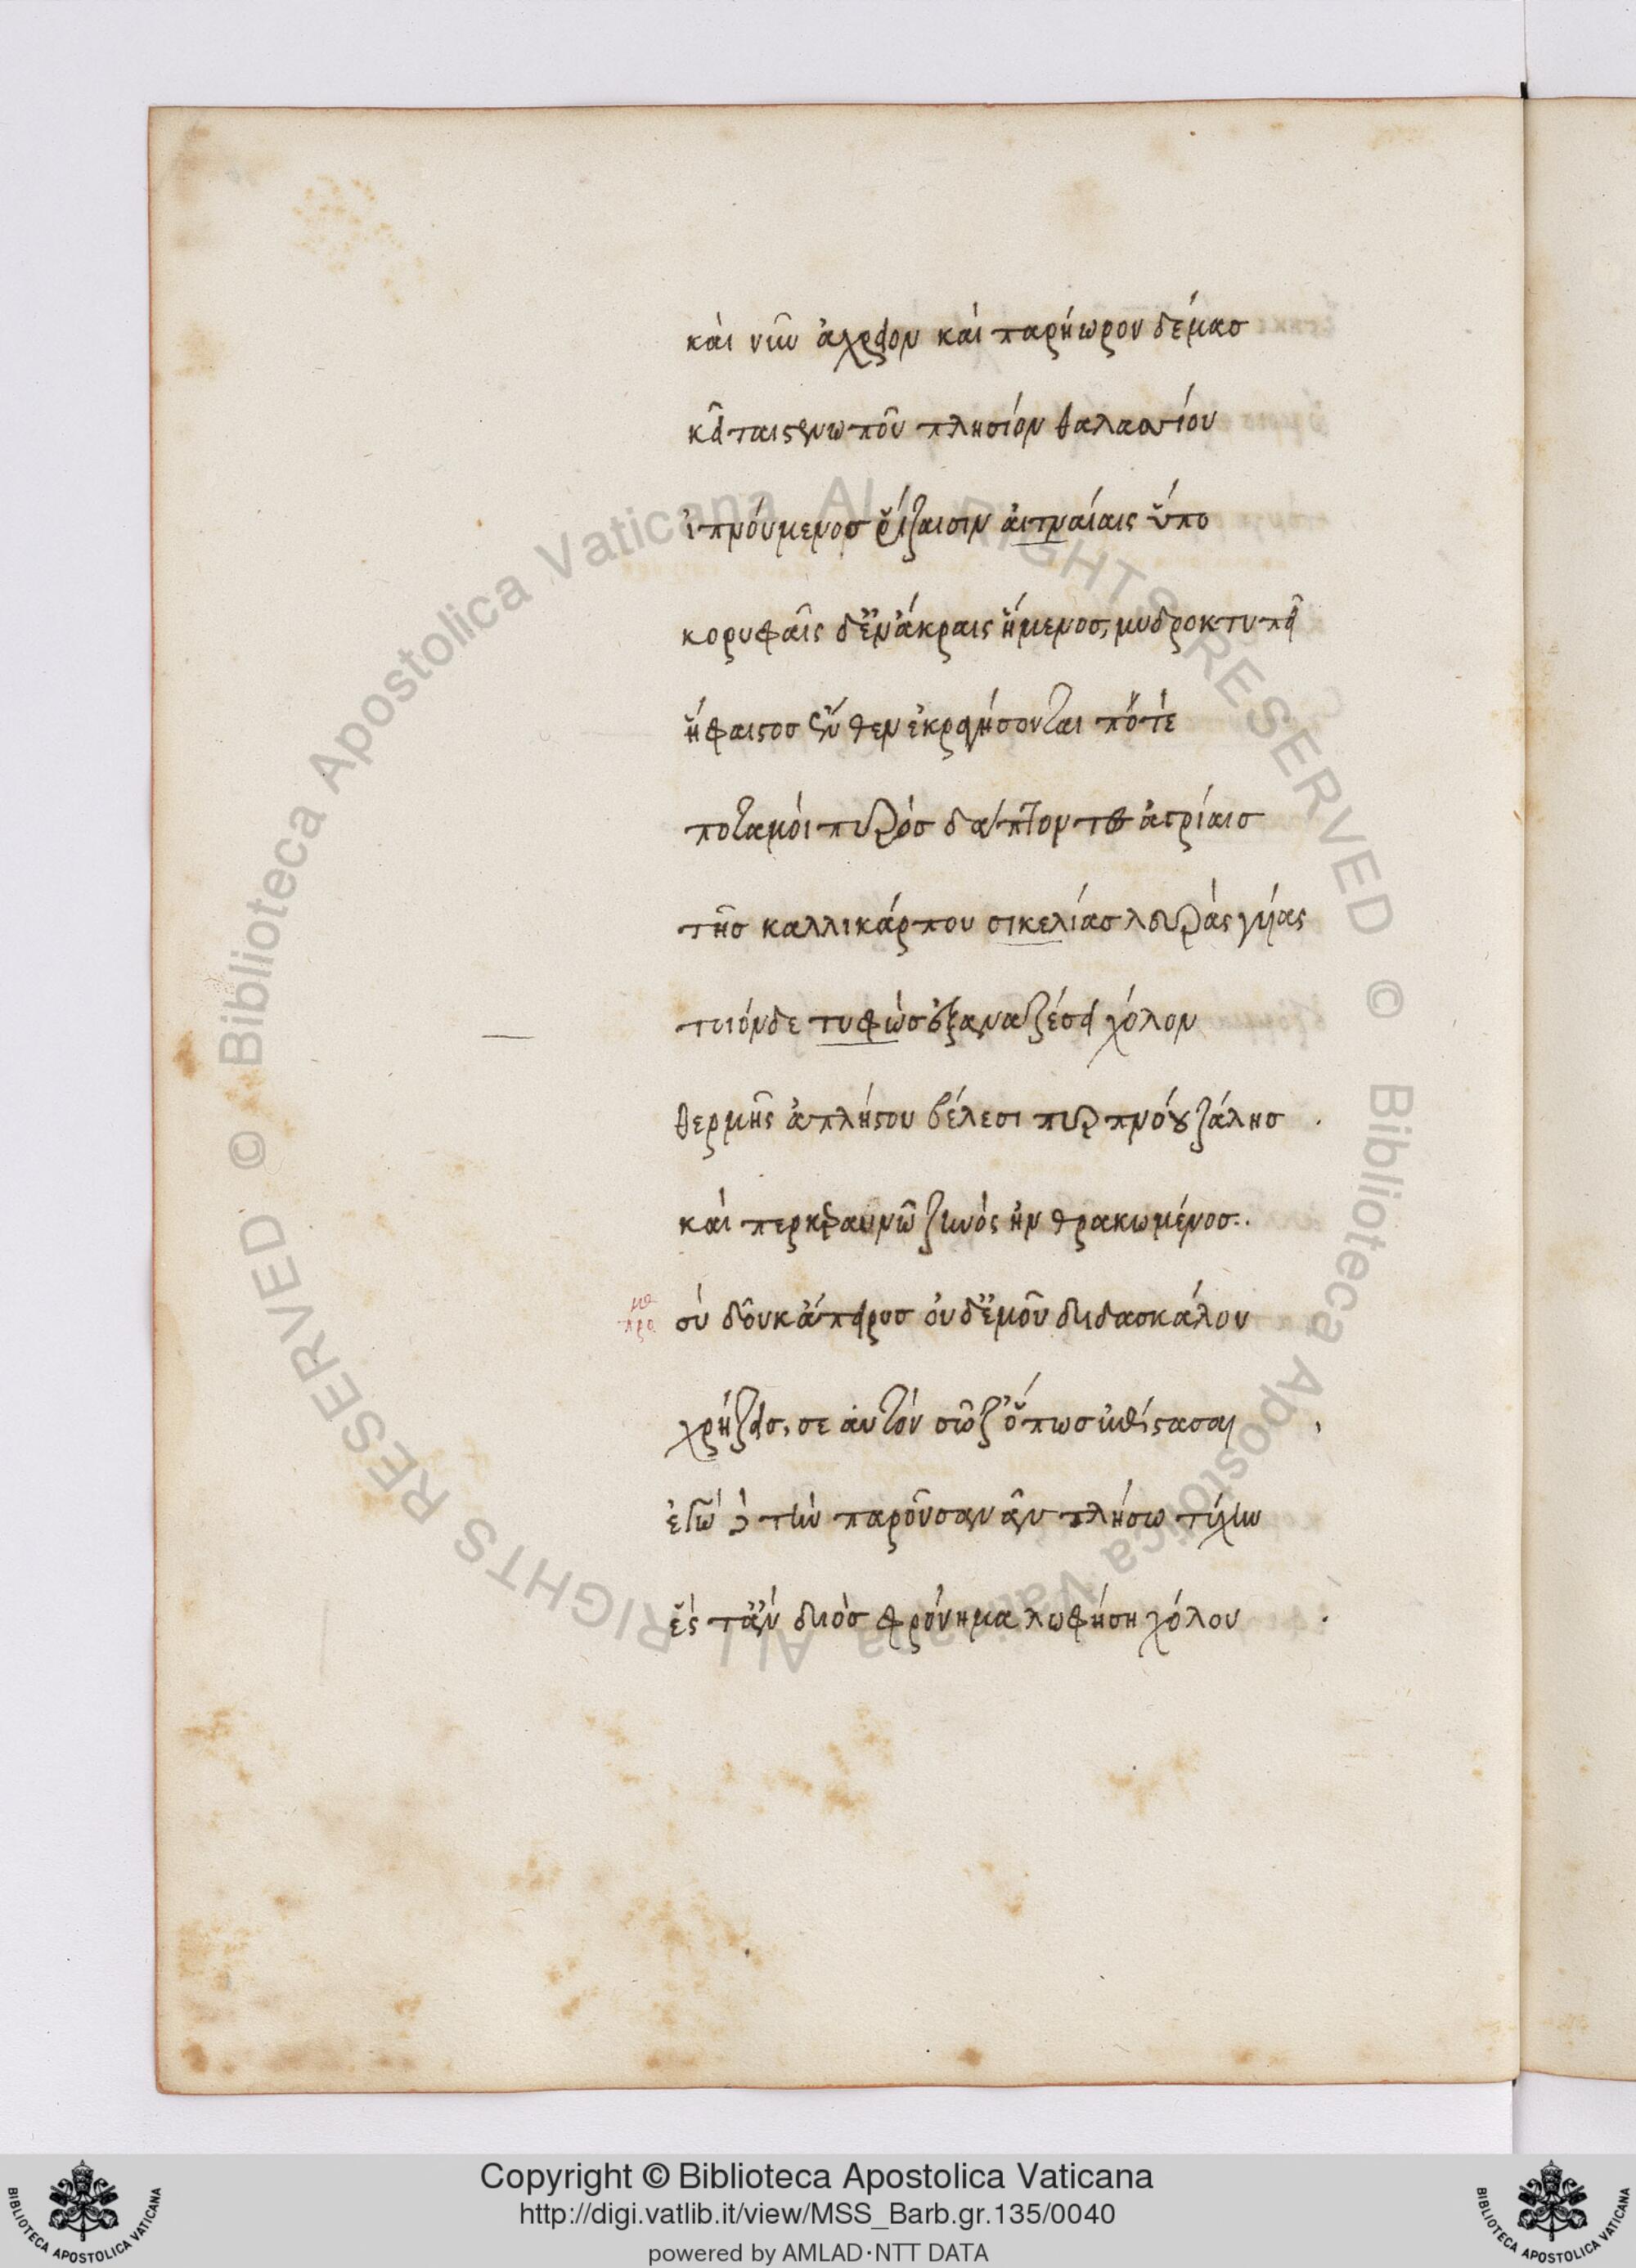 καὶ νῦν ἀχρεῖον καὶ παρήωρον δέμασ
κεῖται στενωποῦ πλησίον θαλασσίου
ἰπνούμενοσ ῥίζαισιν αἰτναίαις ὕπο
κορυφαῖς δ' ἐν ἄκραις ἥμενοσ, μυδροκτυπεῖ
ἥφαιστοσ ἔνθεν ἐκραγήσονται πότὲ
ποταμοὶ πυρὸσ δάπτοντεσ ἀγρίαισ
τῆσ καλλικάρπου σικελίασ λευρὰς γύας
τοιόνδε τυφὼσ ἐξαναζέσει χόλον
θερμῆς ἀπλήστου βέλεσι πυρπνόου ζάλησ
καὶ περ κεραυνῶ ζηνὸς ἠνθρακωμένοσ.
σὺ δ' οὐκ ἄπειροσ οὐδ' ἐμοῦ διδασκάλου
χρήζεισ, σεαυτὸν σῶζ' ὅπωσ ἐπίστασαι
ἐγὼ δὲ τὴν παροῦσαν ἀντλήσω τύχην
ἔς τ' ἂν διὸσ φρόνημα λωφήση χόλου
Copyright © Biblioteca Apostolica Vaticana
http://digi.vatlib.it/view/MSS_Barb.gr.135/0040
powered by AMLAD·NTT DATA
BIBLIOTECA APOSTOLICA VATICANA
BIBLIOTECA APOSTOLICA VATICANA
© Biblioteca Apostolica Vaticana ALL RIGHTS RESERVED © Biblioteca Apostolica Vaticana ALL RIGHTS RESERVED